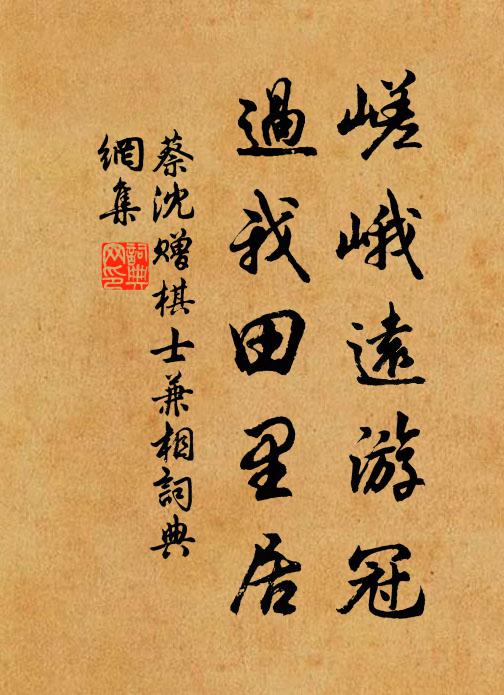 嵯峨遠游冠
過我田里居
蔡沈赠棋士兼相詞典
網集
詞典
网印